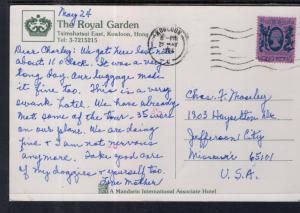 May 24
The Royal Garden
Tsimshatsui East, Kowloon, Hong
Tel: 3-7215215
Dear Charley: We got here last nite
about 11 o'clock. It was a very
long day. Our luggage made
it fine too. This is a very
swank hotel. We have already
met some of the tour. 35 were
on our plane. We are doing
fine & I am not nervous
anymore. Take good care
of my doggies & yourself too.
Love Mother
KOWLOON
MAY
Chas. F. Moseley
1903 Hayselton Dr.
Jefferson City
Missouri 65101
U.S.A.
A Mandarin International Associate Hotel